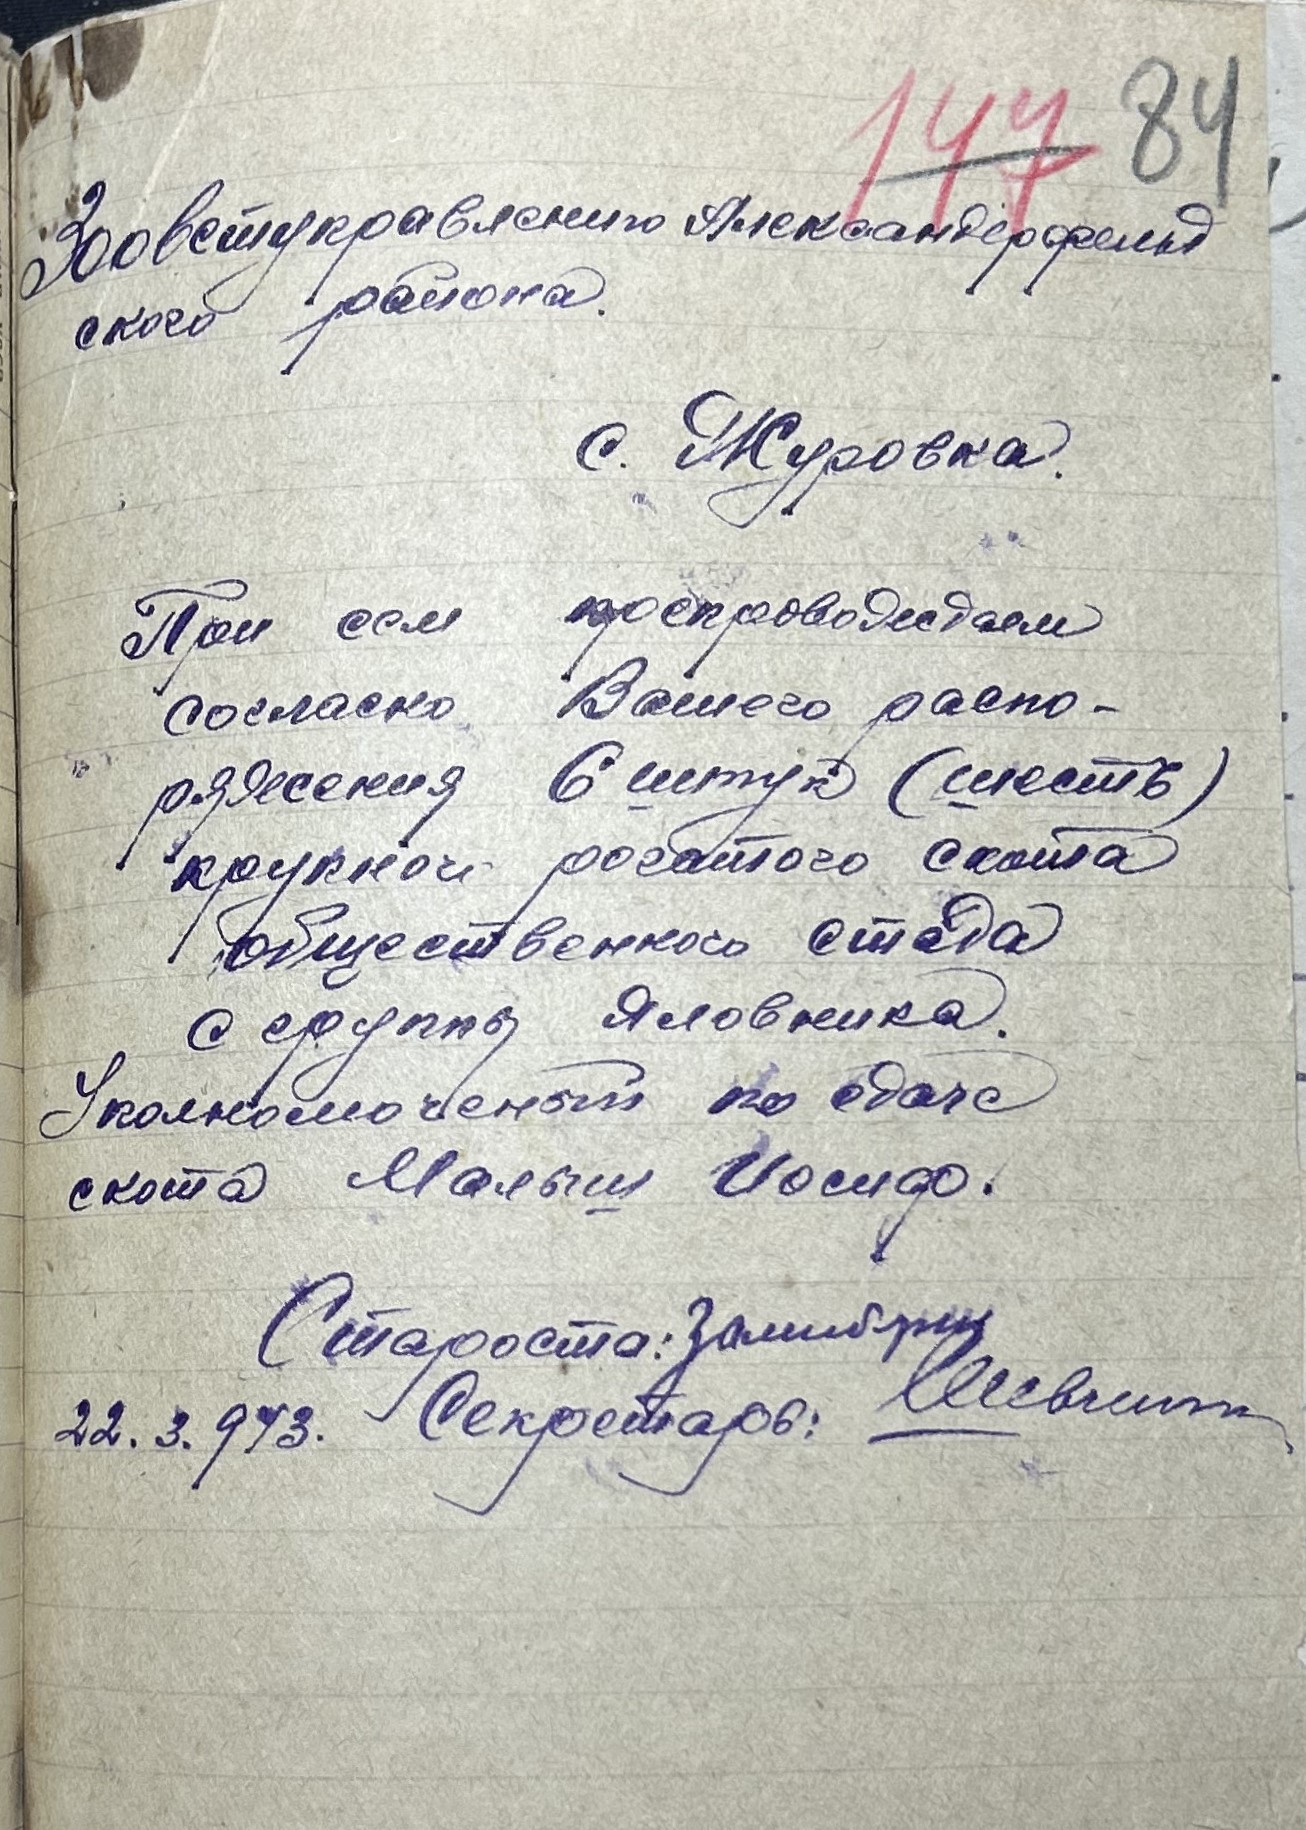 147 84
Зооветуправлению Александерфельд
ского района.
с. Журовка.
При сем препровождаем
согласно Вашего распо-
ряжения 6 штук (шесть)
крупного рогатого скота
общественного стада
с группы Яловника.
Уполномоченый по сдаче
скота Малыш Иосиф.
Староста:
22.3.943. Секретарь: